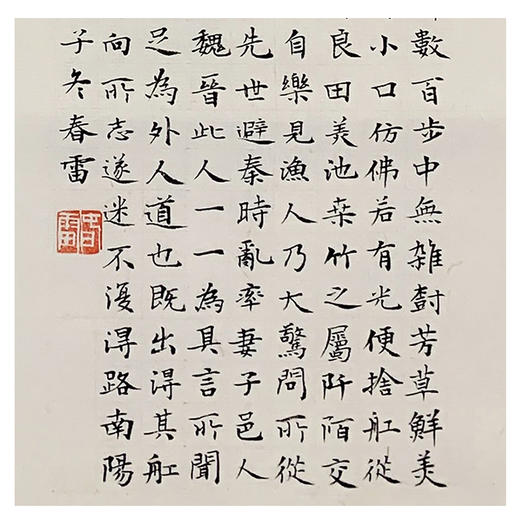 數百步中無雜樹芳草鮮美
小口仿佛若有光便捨舡從
良田美池桑竹之屬阡陌交
自樂見漁人乃大驚問所從
先世避秦時亂率妻子邑人
魏晉此人一一為具言所聞
足為外人道也既出得其舡
向所志遂迷不復得路南陽
子冬春雷